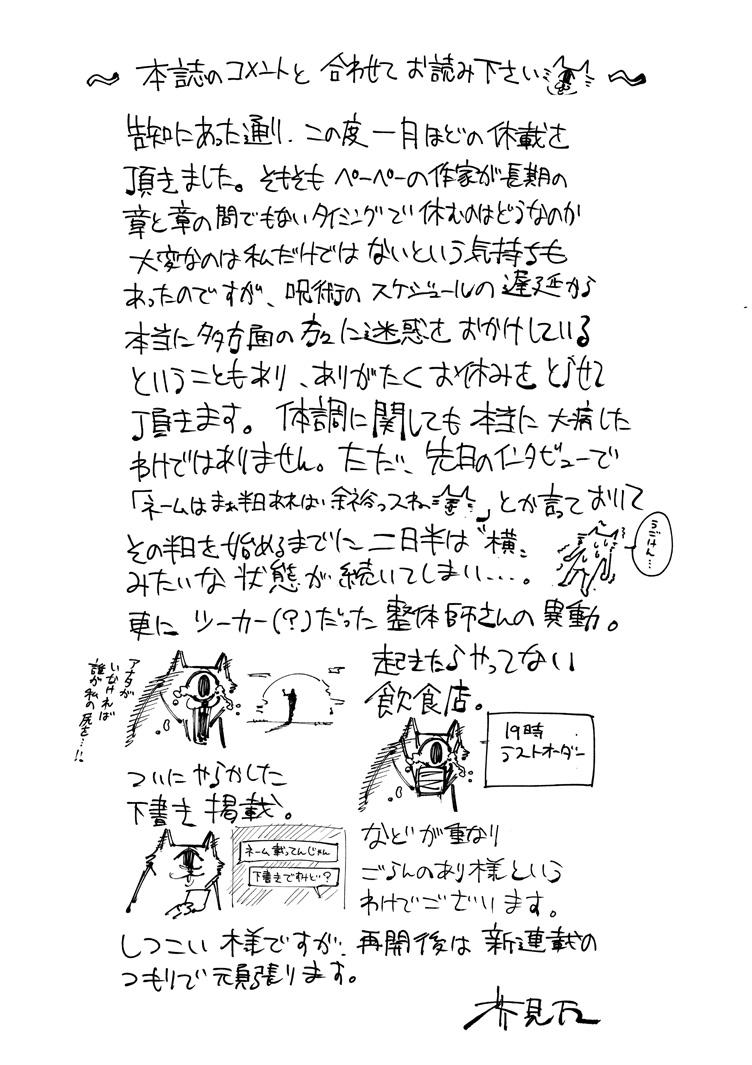 〜本誌のコメントと合わせてお読み下さい〜
告知にあった通り、この度一月ほどの休載を
頂きました。そもそもペーペーの作家が長期の
章と章の間でもないタイミングで休むのはどうなのか
大変なのは私だけではないという気持ちも
あったのですが、呪術のスケジュールの遅延から
本当に多方面の方々に迷惑をおかけしている
ということもあり、ありがたくお休みをとらせて
頂きます。体調に関しても本当に大病した
わけではありません。ただ、先日のインタビューで
「ネームはまぁ半日あれば余裕っスねー」とか言っておいて
その半日を始めるまでに二日半は〝横〟
みたいな状態が続いてしまい…。
うごけん…
更にツーカー(?)だった整体師さんの異動。
アナタが
いなければ
誰が私の尻を…!!
起きたらやってない
飲食店。
19時
ラストオーダー
ついにやらかした
下書き掲載。
ネーム載ってんじゃん
下書きですけど?
などが重なり
ごらんのあり様という
わけでございます。
しつこい様ですが、再開後は新連載の
つもりで頑張ります。
芥見下々